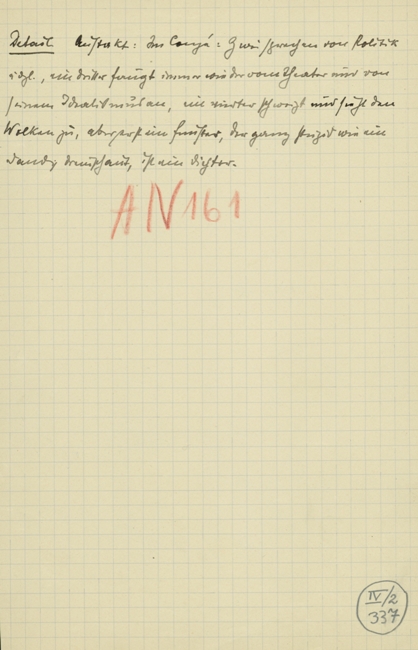 Detail Auftakt: Im Coupé: Zwei sprechen von Politik
udgl., ein dritter fängt immer wieder vom Theater und von
seinem Idealismus an, ein vierter schweigt und sieht den
Wolken zu, aber erst ein fünfter, der ganz stupid wie ein
Dandy dreinschaut, ist ein Dichter.
AN 161
IV/2
337